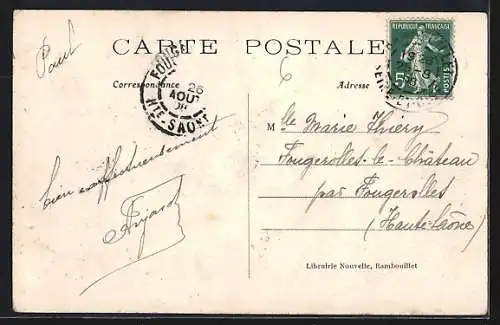 Paul
CARTE POSTALE
Correspondance
Adresse
RÉPUBLIQUE FRANÇAISE
5c
POSTES
FOUGE
26
AOUT
08
HTE-SAONE
6
M lle Marie Thiéry
Fougerolles-le-Château
par Fougerolles
(Haute-Saône)
bien affectueusement
Librairie Nouvelle, Rambouillet